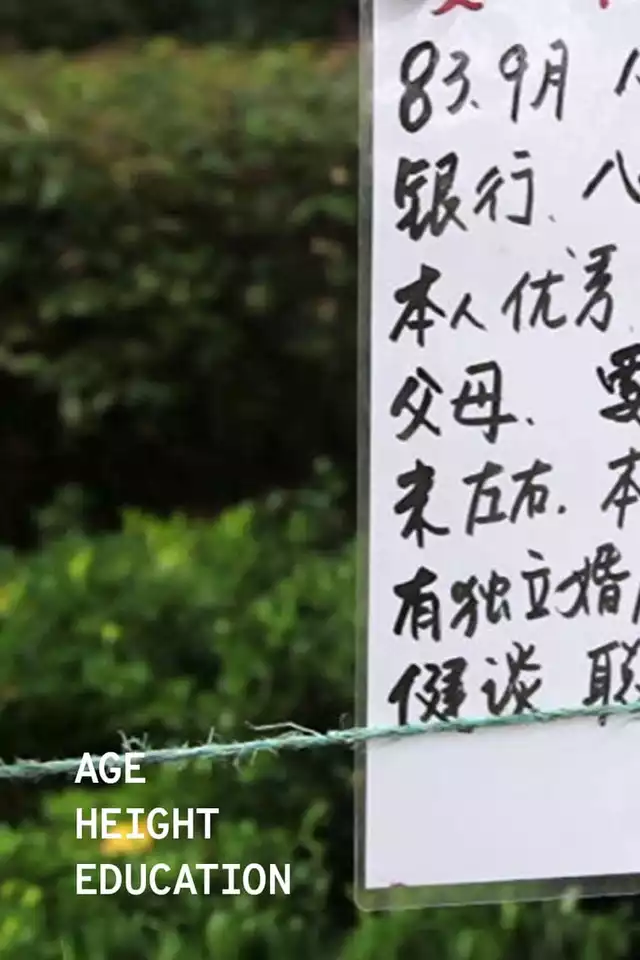 83.9月
银行、八
本人优秀
父母. 要
米左右. 本
有独立婚
健谈 联
AGE
HEIGHT
EDUCATION